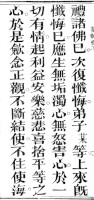 禮諸佛已次復懺悔弟子等上來既
懺悔已應生無垢濁心無怒害心於一
切有情起利益安樂慈悲喜捨平等之
心於是歛念正觀不斷結使不住使海